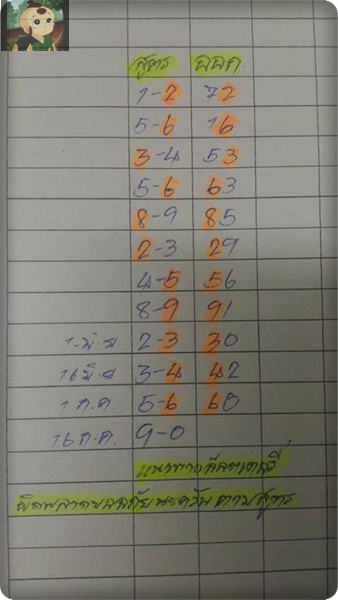 สูตร ออก
1-2 72
5-6 16
3-4 53
5-6 63
8-9 85
2-3 29
4-5 56
8-9 91
1.มิ.ย 2-3 30
16 มิ.ย 3-4 42
1 ก.ค 5-6 60
16 ก.ค. 9-0
แนวทาง
ผิดพลาดขออภัยนะครับ ตามสูตร